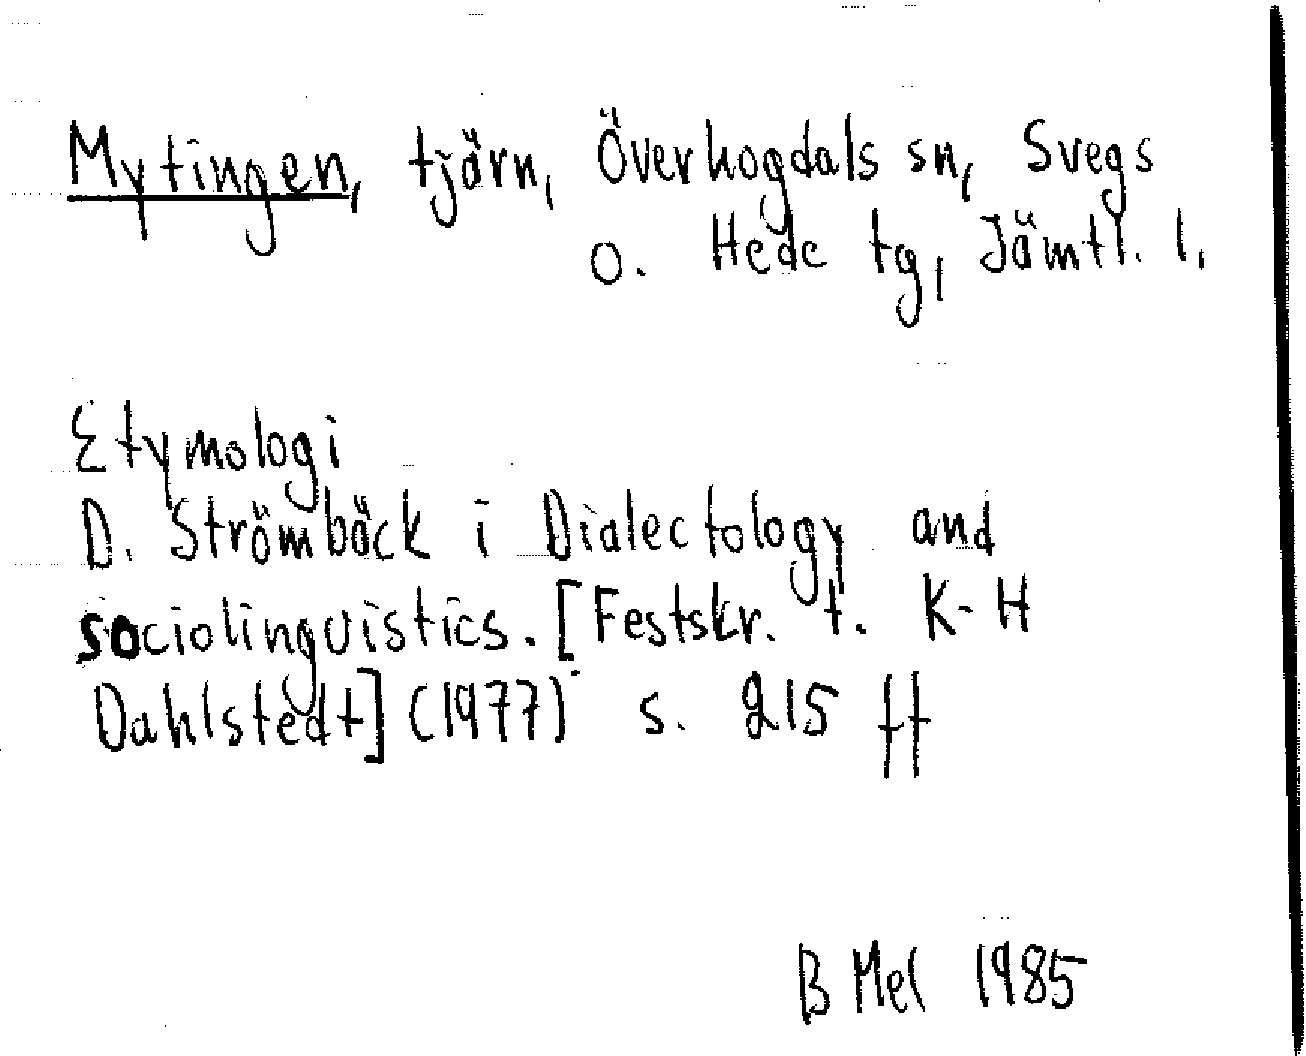 Mytingen, tjärn, Överhogdals sn, Svegs
o. Hede tg, Jämtl. l.
Etymologi
D. Strömbäck i Dialectology and
sociolinguistics. [Festskr. t. K-H
Dahlstedt] (1977) s. 215 ff
B Mel 1985